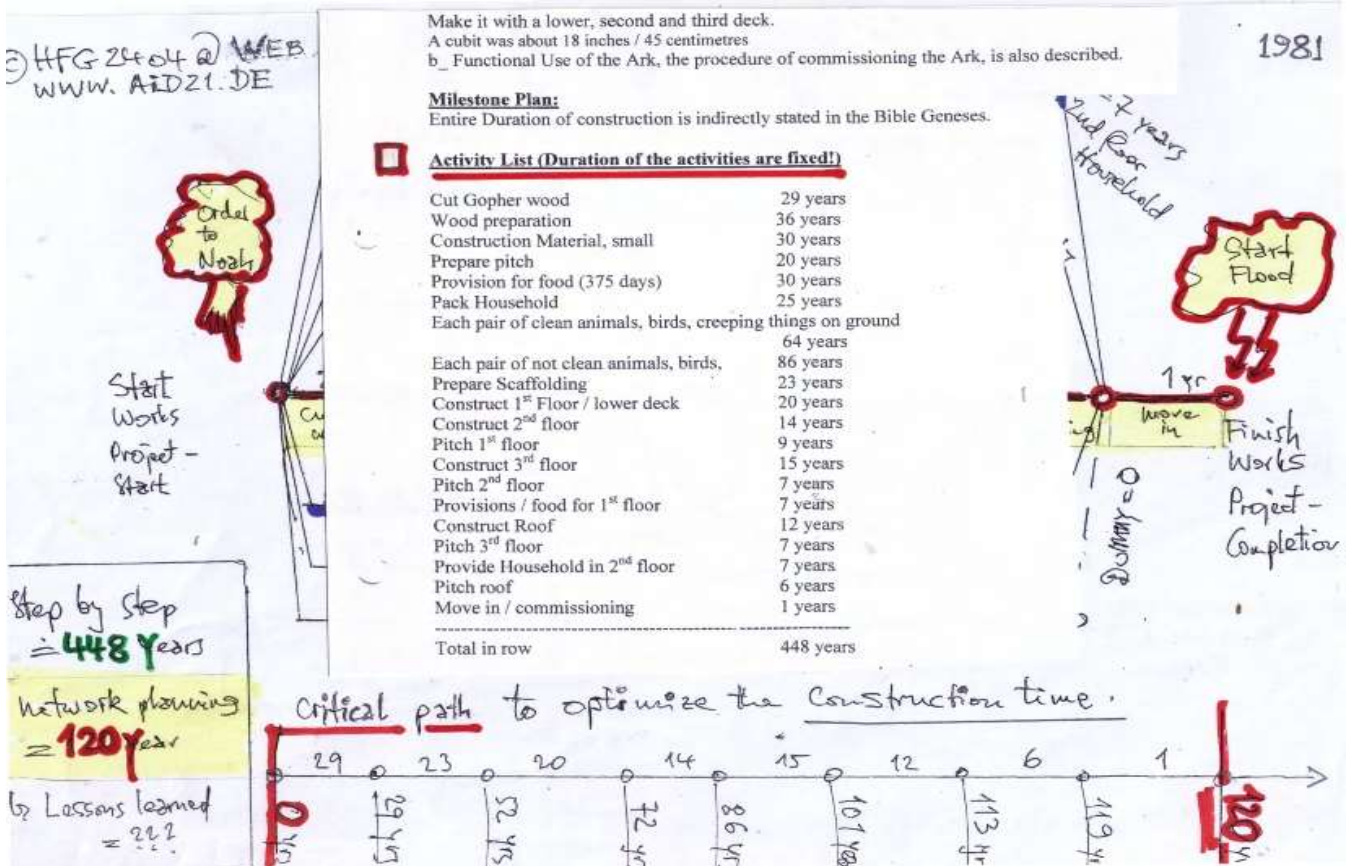 Make it with a lower, second and third deck.
A cubit was about 18 inches / 45 centimetres
b_ Functional Use of the Ark, the procedure of commissioning the Ark, is also described.
© HFG 2404@ WEB.
WWW. AiD21.DE
1981
Milestone Plan:
Entire Duration of construction is indirectly stated in the Bible Geneses.
Activity List (Duration of the activities are fixed!)
Cut Gopher wood 29 years
Wood preparation 36 years
Construction Material, small 30 years
Prepare pitch 20 years
Provision for food (375 days) 30 years
Pack Household 25 years
Each pair of clean animals, birds, creeping things on ground
64 years
Each pair of not clean animals, birds, 86 years
Prepare Scaffolding 23 years
Construct 1st Floor / lower deck 20 years
Construct 2nd floor 14 years
Pitch 1st floor 9 years
Construct 3rd floor 15 years
Pitch 2nd floor 7 years
Provisions / food for 1st floor 7 years
Construct Roof 12 years
Pitch 3rd floor 7 years
Provide Household in 2nd floor 7 years
Pitch roof 6 years
Move in / commissioning 1 years
Total in row 448 years
7 years
2nd floor
Household
Order
to
Noah
Start
Flood
Start
Works
Project-
Start
1 yr
move
in
Finish
Works
Project-
Completion
Dummy=0
Step by step
= 448 Years
network planning
= 120 Year
Lessons learned
= ???
critical path to optimize the Construction time.
29 23 20 14 15 12 6 1
0 yrs 29 yrs 52 yrs 72 yr 86 yrs 107 yea 113 yr 119 yr 120 y